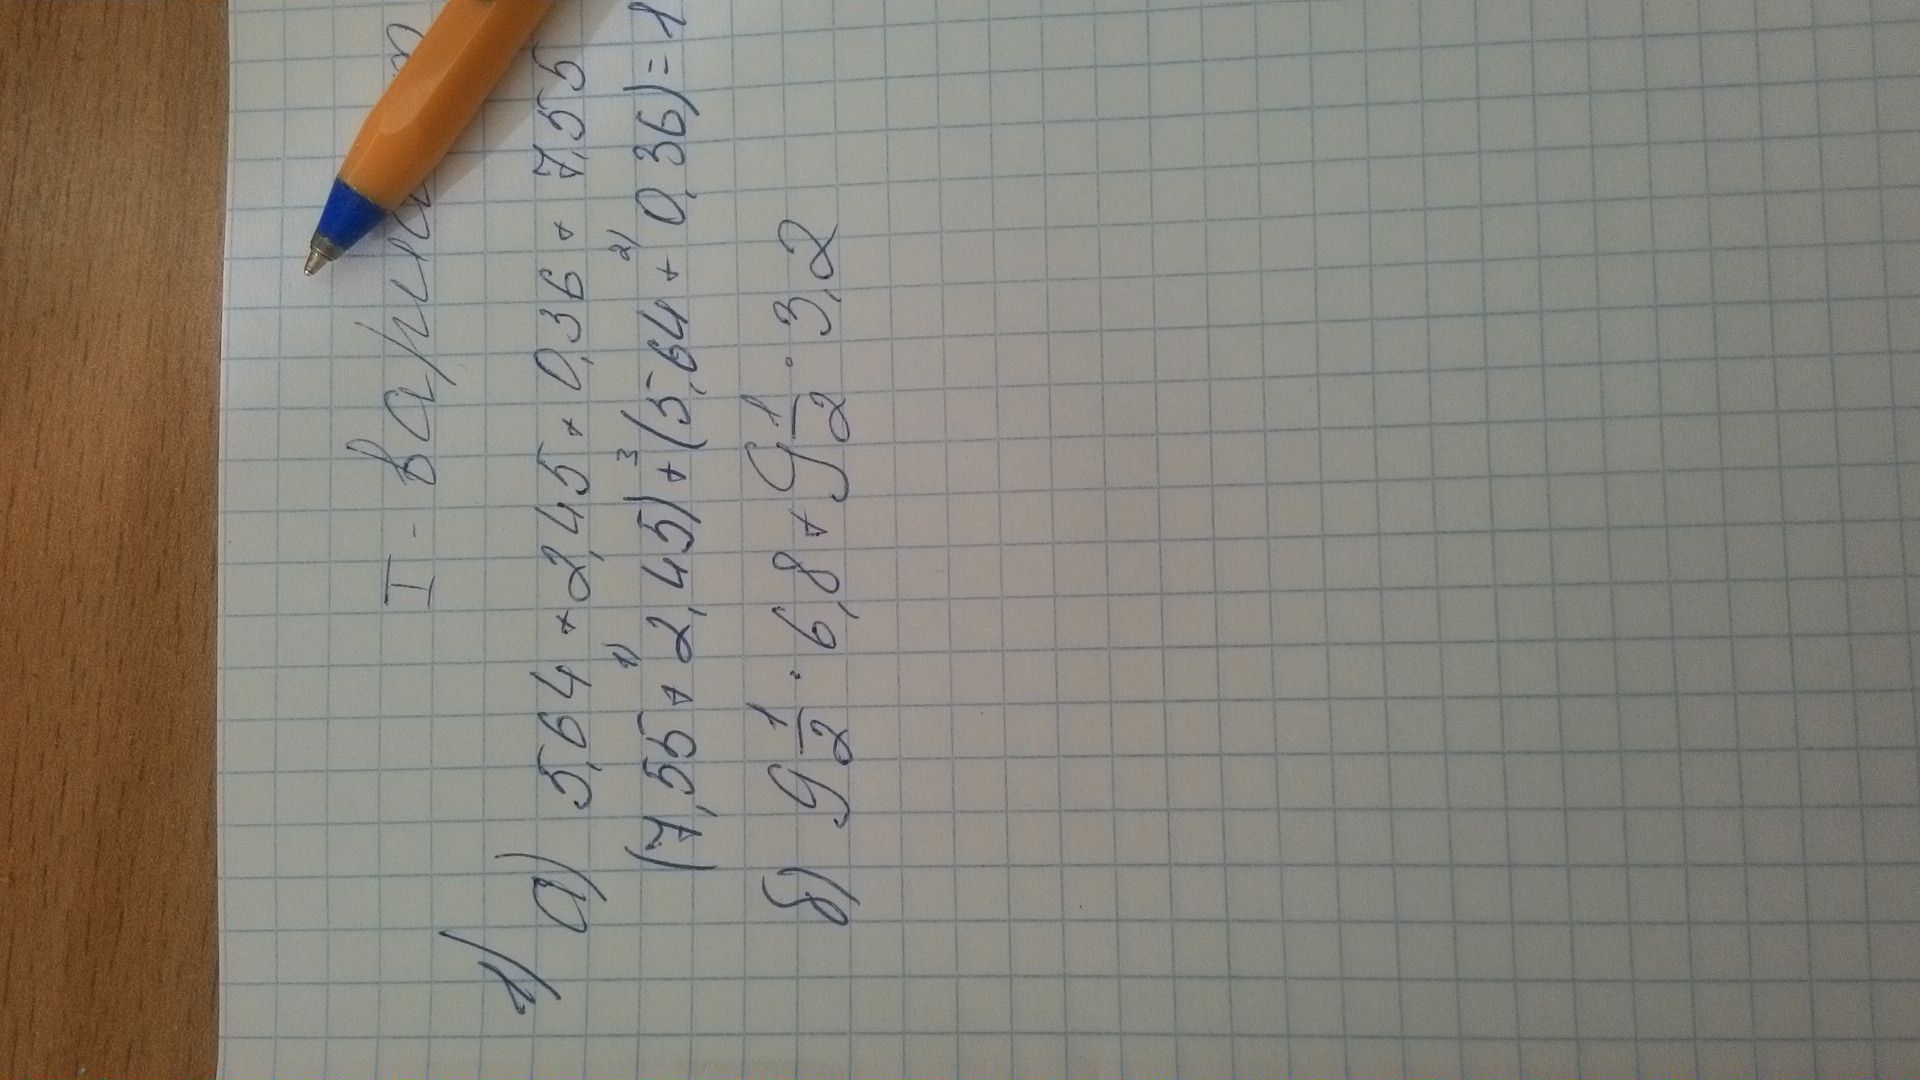 I - вариант
1)
а) 5,64 + 2,45 + 0,36 + 7,55
(7,55 + 2,45) + (5,64 + 0,36) = 1
1) 3 2)
б) 9 1/2 · 6,8 + 9 1/2 · 3,2